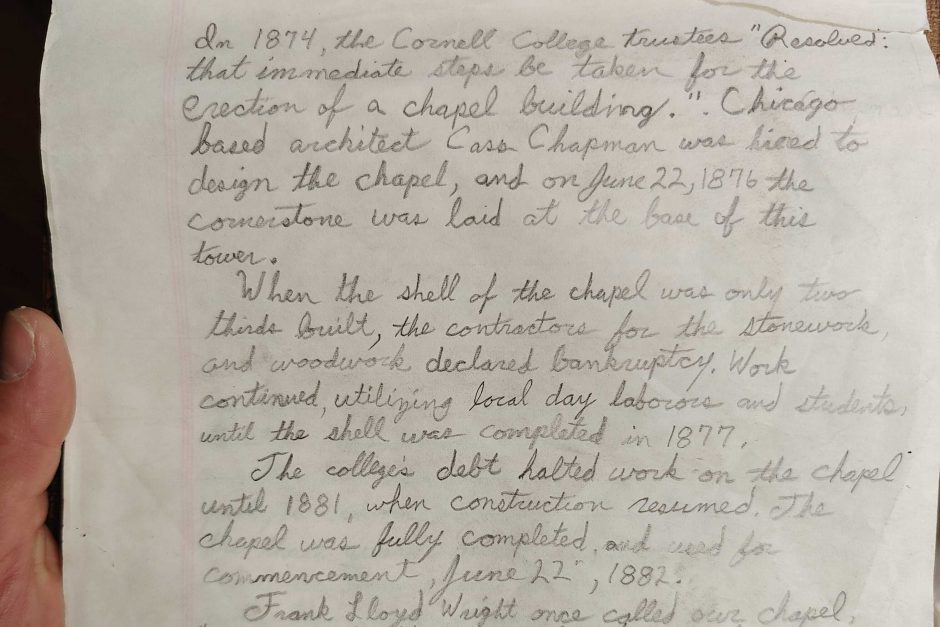 In 1874, the Cornell College trustees "Resolved:
that immediate steps be taken for the
erection of a chapel building.". Chicago
based architect Cass Chapman was hired to
design the chapel, and on June 22, 1876 the
cornerstone was laid at the base of this
tower.
When the shell of the chapel was only two
thirds built, the contractors for the stonework,
and woodwork declared bankruptcy. Work
continued, utilizing local day laborors and students,
until the shell was completed in 1877.
The college's debt halted work on the chapel
until 1881, when construction resumed. The
chapel was fully completed, and used for
commencement, June 22, 1882.
Frank Lloyd Wright once called our chapel,